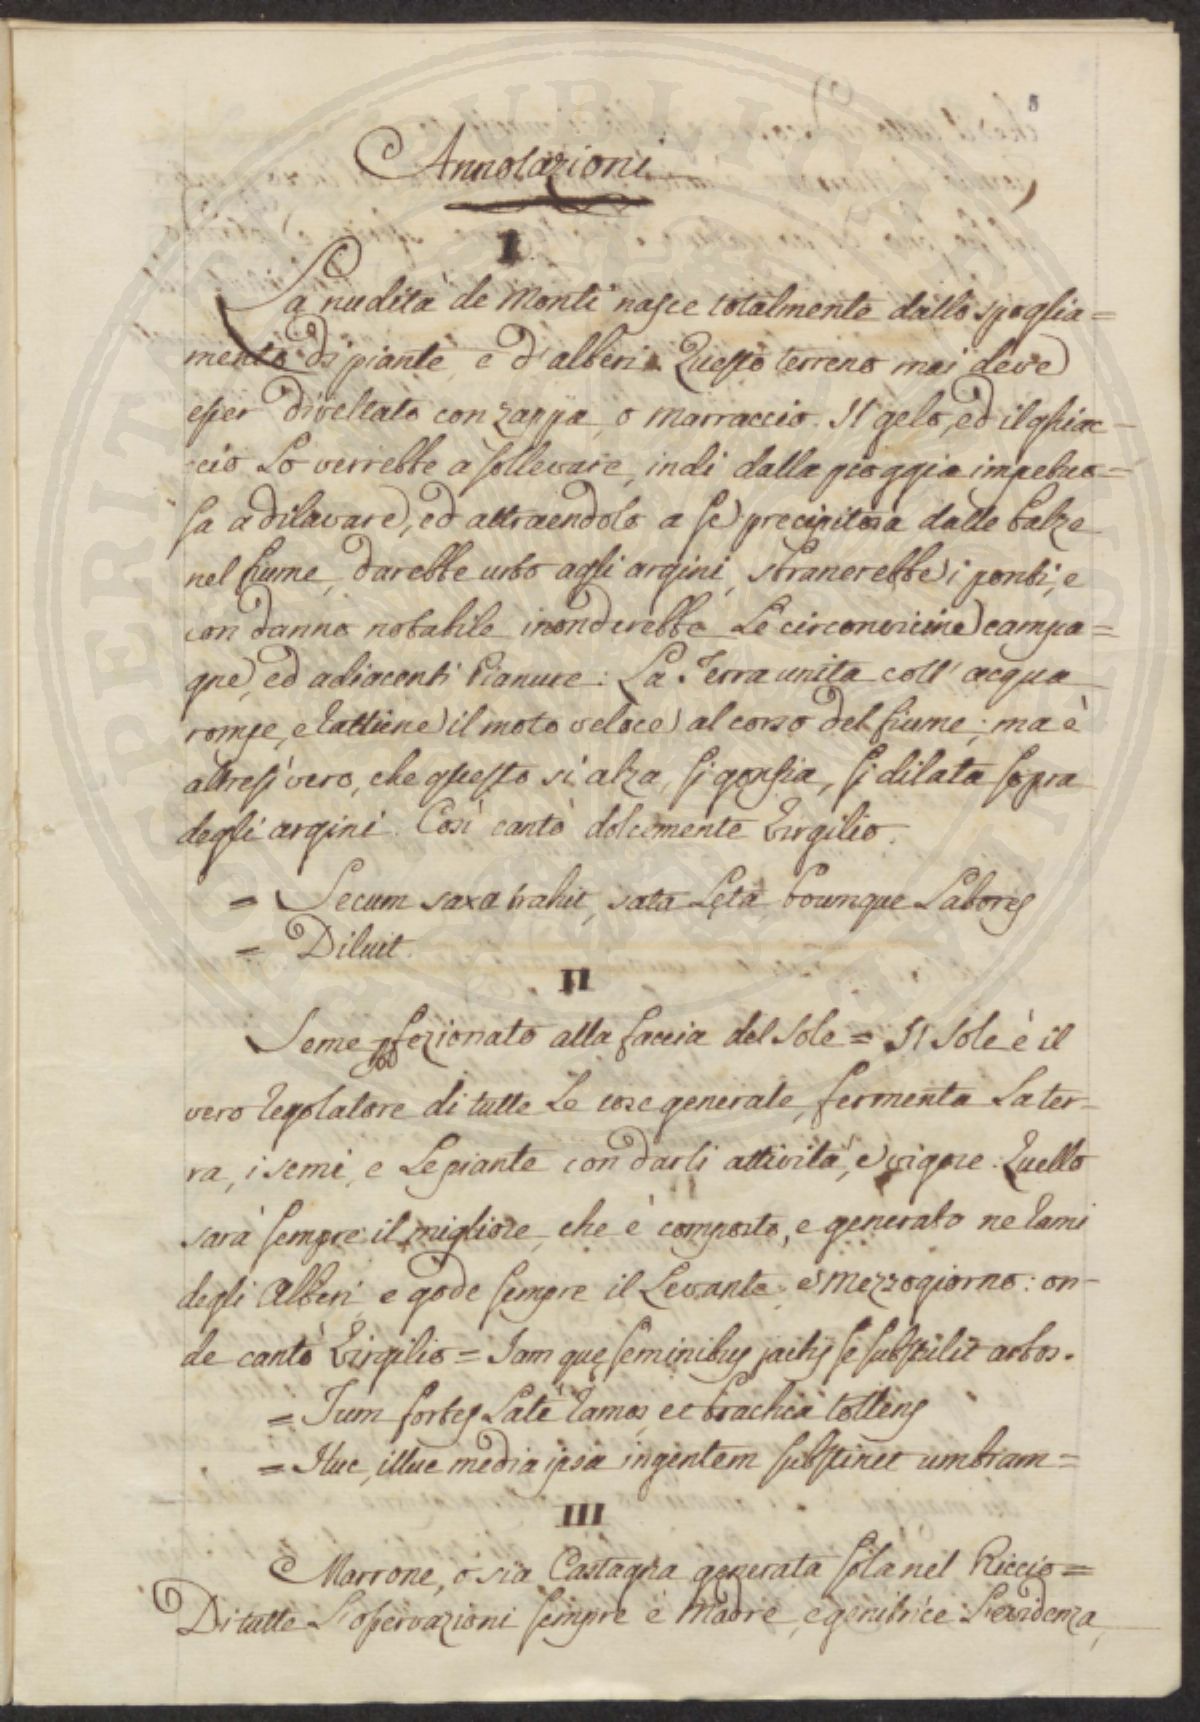 5
Annotazioni
I
La nudità de Monti nasce totalmente dallo spoglia=
mento di piante e d'alberi. Questo terreno mai deve
esser diveltato con zappa, o marraccio. Il gelo, ed il ghiac-
cio Lo verrebbe a sollevare, indi dalla pioggia impetuo=
sa a dilavare, ed attraendolo a se precipitosa dalle balze
nel fiume, darebbe urto agli argini, stranerebbe i ponti, e
con danno notabile inonderebbe Le circonvicine campa=
gne, ed adiacenti Pianure: La Terra unita coll' acqua
rompe, e rattiene il moto veloce al corso del fiume; ma è
altresì vero, che questo si alza, si gonfia, si dilata sopra
degli argini. Così cantò dolcemente Virgilio.
= Secum saxa trahit, sata Lęta boumque Labores
= Diluit.
II
Seme perfezionato alla faccia del Sole = Il Sole è il
vero regolatore di tutte Le cose generate, fermenta La ter-
ra, i semi, e Le piante con darli attività, e vigore. Quello
sarà sempre il migliore, che è composto, e generato ne rami
degli Alberi, e gode sempre il Levante, e Mezzogiorno: on-
de cantò Virgilio = Iam quę seminibus jactis se substulit arbos.
= Tum fortes Latè ramos, et brachia tollens
= Huc, illuc media ipsa ingentem substinet umbram =
III
Marrone, o sia Castagna generata sola nel Riccio =
Di tutte L'osservazioni sempre è Madre, e genitrice L'evidenza,